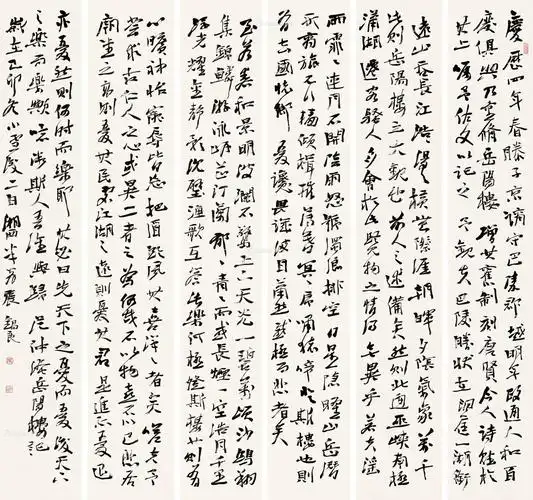 慶曆四年春滕子京謫守巴陵郡越明年政通人和百
廢俱興乃重修岳陽樓增其舊制刻唐賢今人詩賦於
其上囑予作文以記之予觀夫巴陵勝狀在洞庭一湖銜
遠山吞長江浩浩湯湯橫無際涯朝暉夕陰氣象萬千
此則岳陽樓之大觀也前人之述備矣然則北通巫峽南極
瀟湘遷客騷人多會於此覽物之情得無異乎若夫淫
雨霏霏連月不開陰風怒號濁浪排空日星隱曜山岳潛
形商旅不行檣傾楫摧薄暮冥冥虎嘯猿啼登斯樓也則
有去國懷鄉憂讒畏譏滿目蕭然感極而悲者矣
至若春和景明波瀾不驚上下天光一碧萬頃沙鷗翔
集錦鱗游泳岸芷汀蘭郁郁青青而或長煙一空皓月千里
浮光耀金靜影沉璧漁歌互答此樂何極登斯樓也則有
心曠神怡寵辱皆忘把酒臨風其喜洋洋者矣嗟夫予
嘗求古仁人之心或異二者之為何哉不以物喜不以己悲居
廟堂之高則憂其民處江湖之遠則憂其君是進亦憂退
亦憂然則何時而樂耶其必曰先天下之憂而憂後天下
之樂而樂歟噫微斯人吾誰與歸范仲淹岳陽樓記
歲在己卯冬小雪後二日湖